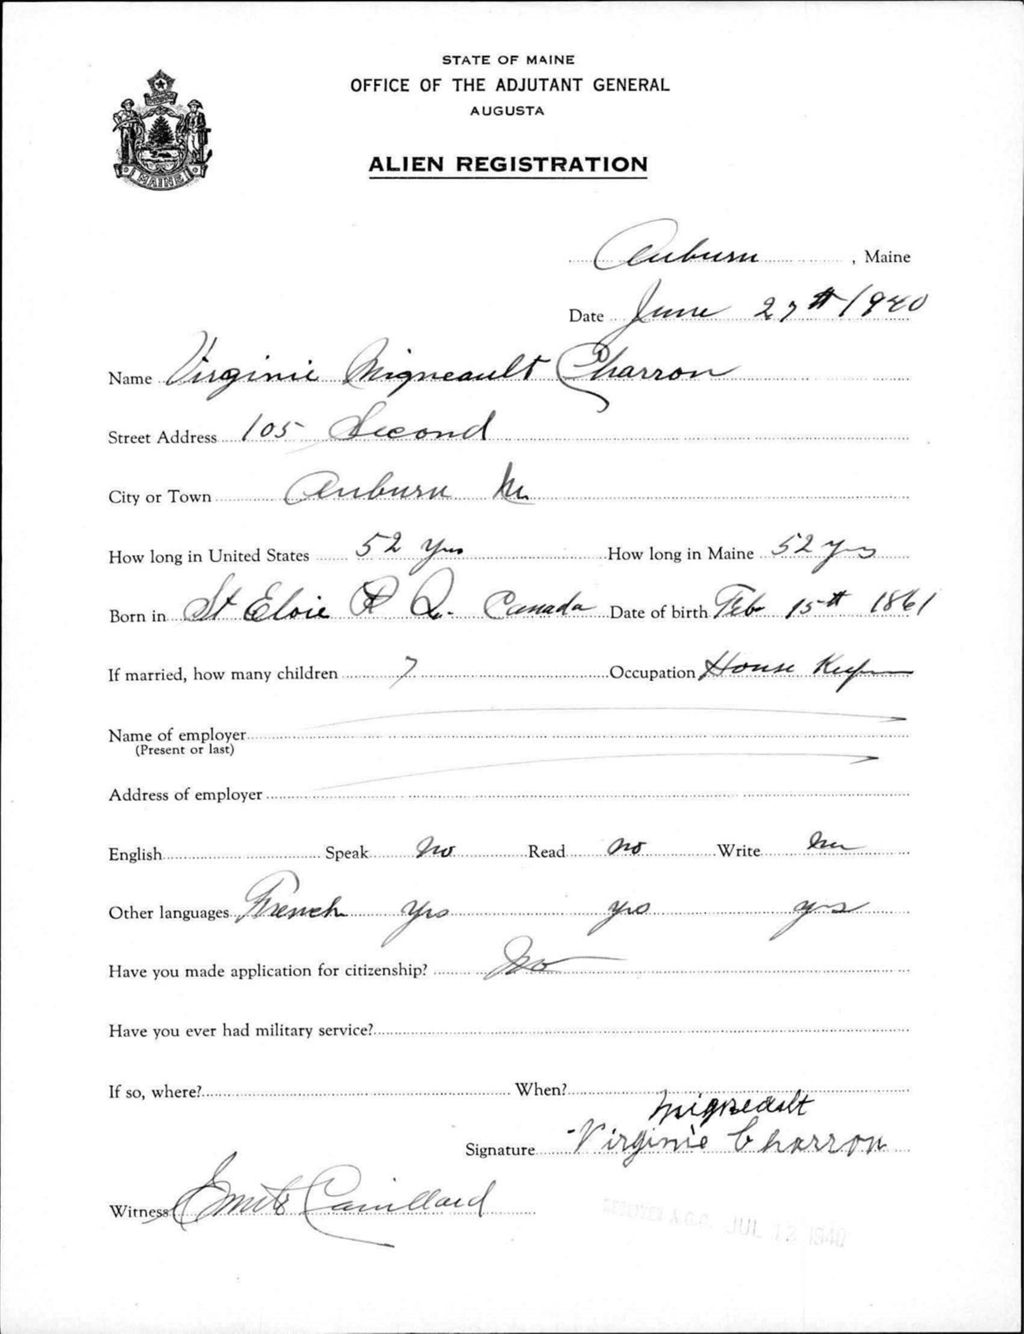 STATE OF MAINE
OFFICE OF THE ADJUTANT GENERAL
AUGUSTA
ALIEN REGISTRATION
MAINE
Auburn, Maine
Date June 27th 1940
Name Virginie Migneault Charron
Street Address 105 Second
City or Town Auburn Me
How long in United States 52 yrs How long in Maine 52 yrs
Born in St Eloie P Q. Canada Date of birth Feb 15th 1861
If married, how many children 7 Occupation House Keeper
Name of employer
(Present or last)
Address of employer
English Speak No Read no Write No
Other languages French yes yes yes
Have you made application for citizenship? No
Have you ever had military service?
If so, where? When?
Migneault
Signature Virginie Charron
Witness
A.G.O. JUL 12 1940